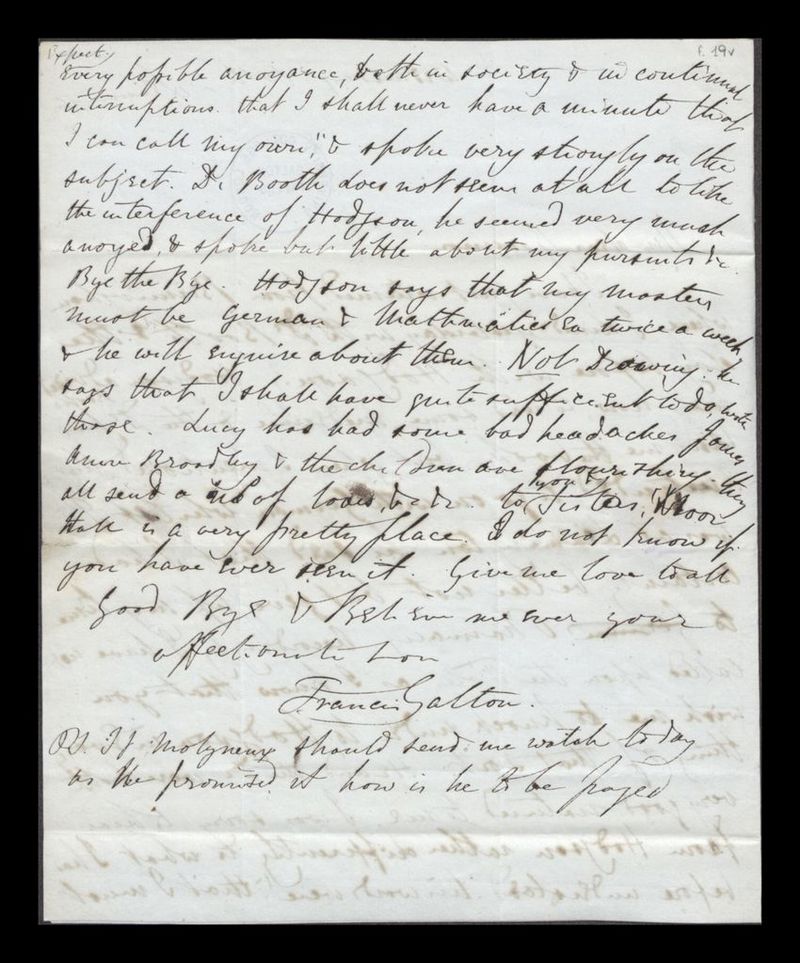 f. 19v
Expect
every possible anoyance, both in society & in continual
interruptions. that I shall never have a minute that
I can call my own", & spoke very strongly on the
subject. Dr Booth does not seem at all to like
the interference of Hodgson, he seemed very much
anoyed, & spoke but little about my pursuits &c.
Bye the Bye. Hodgson says that my masters
must be German & Mathmatics ea twice a week
& he will enquire about them. Not Drawing. he
says that I shall have quite sufficient to do, with
those. Lucy has had some bad headaches James
Anne Broadley & the children are flourishing. they
all send a of loves, &c &c. to you & Sisters, Moor
Hall is a very pretty place. I do not know if
you have ever seen it. Give me love to all
Good Bye & Believe me ever your
affectionate Son
Francis Galton.
PS. If Molyneux should send me watch to day
as he promised it how is he to be payed